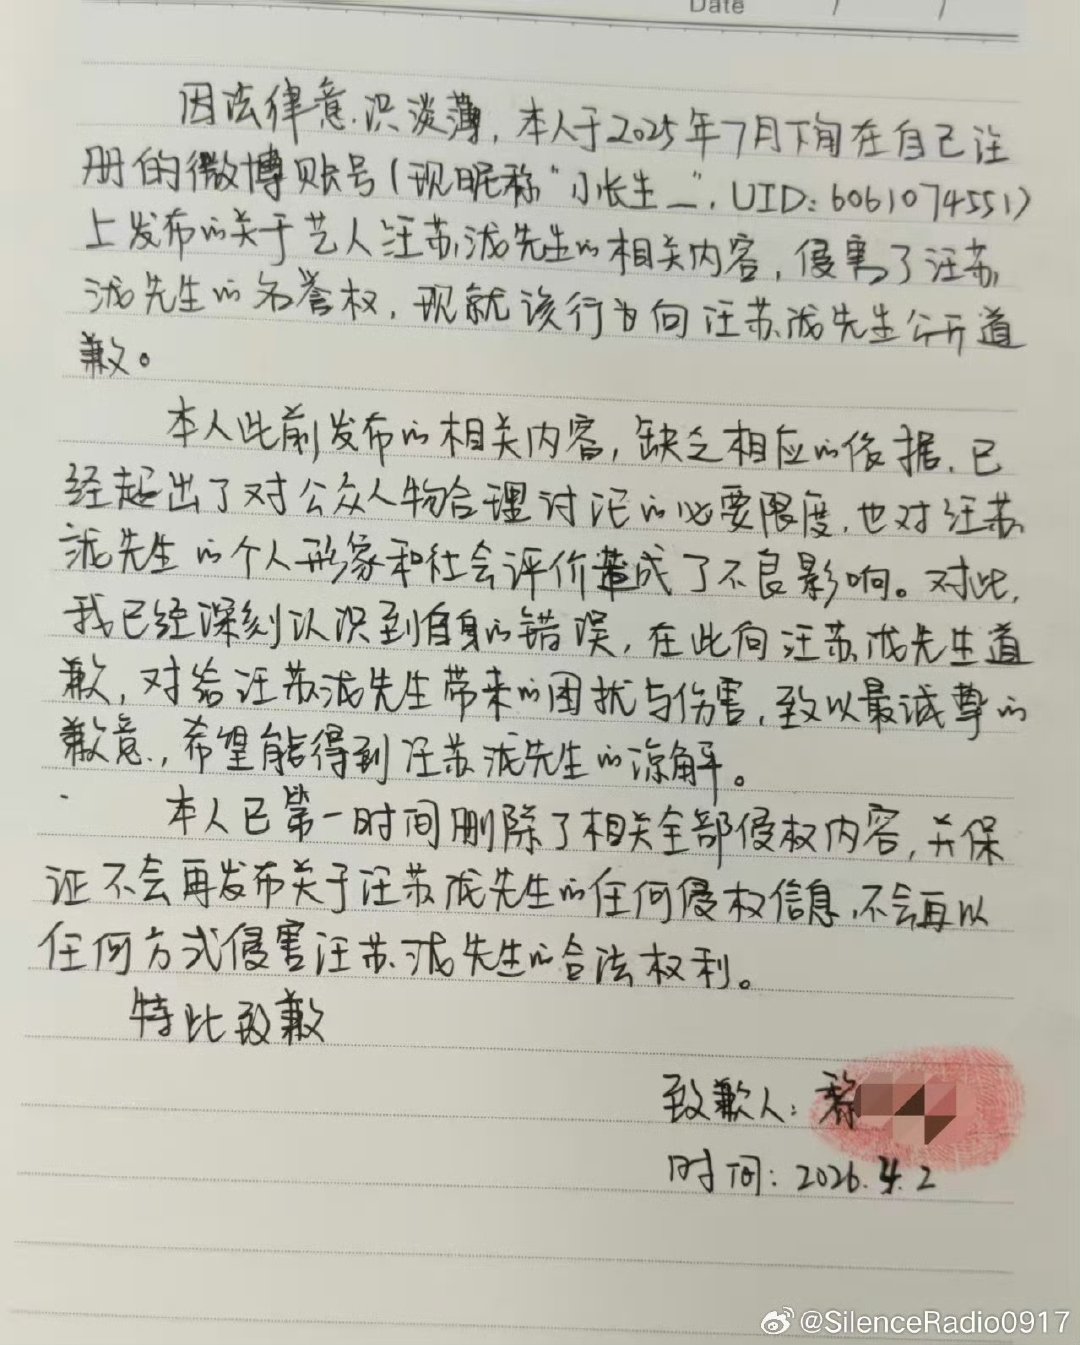 Date / /
因法律意识淡薄，本人于2025年7月下旬在自己注
册的微博账号（现昵称“小张生_”，UID：6061074551）
上发布的关于艺人汪苏泷先生的相关内容，侵害了汪苏
泷先生的名誉权，现就该行为向汪苏泷先生公开道
歉。
本人此前发布的相关内容，缺乏相应的依据，已
经超出了对公众人物合理讨论的必要限度，也对汪苏
泷先生的个人形象和社会评价造成了不良影响。对此，
我已经深刻认识到自身的错误，在此向汪苏泷先生道
歉，对给汪苏泷先生带来的困扰与伤害，致以最诚挚的
歉意，希望能得到汪苏泷先生的谅解。
本人已第一时间删除了相关全部侵权内容，并保
证不会再发布关于汪苏泷先生的任何侵权信息，不会再以
任何方式侵害汪苏泷先生的合法权利。
特此致歉
致歉人：
时间：2026.4.2
@SilenceRadio0917